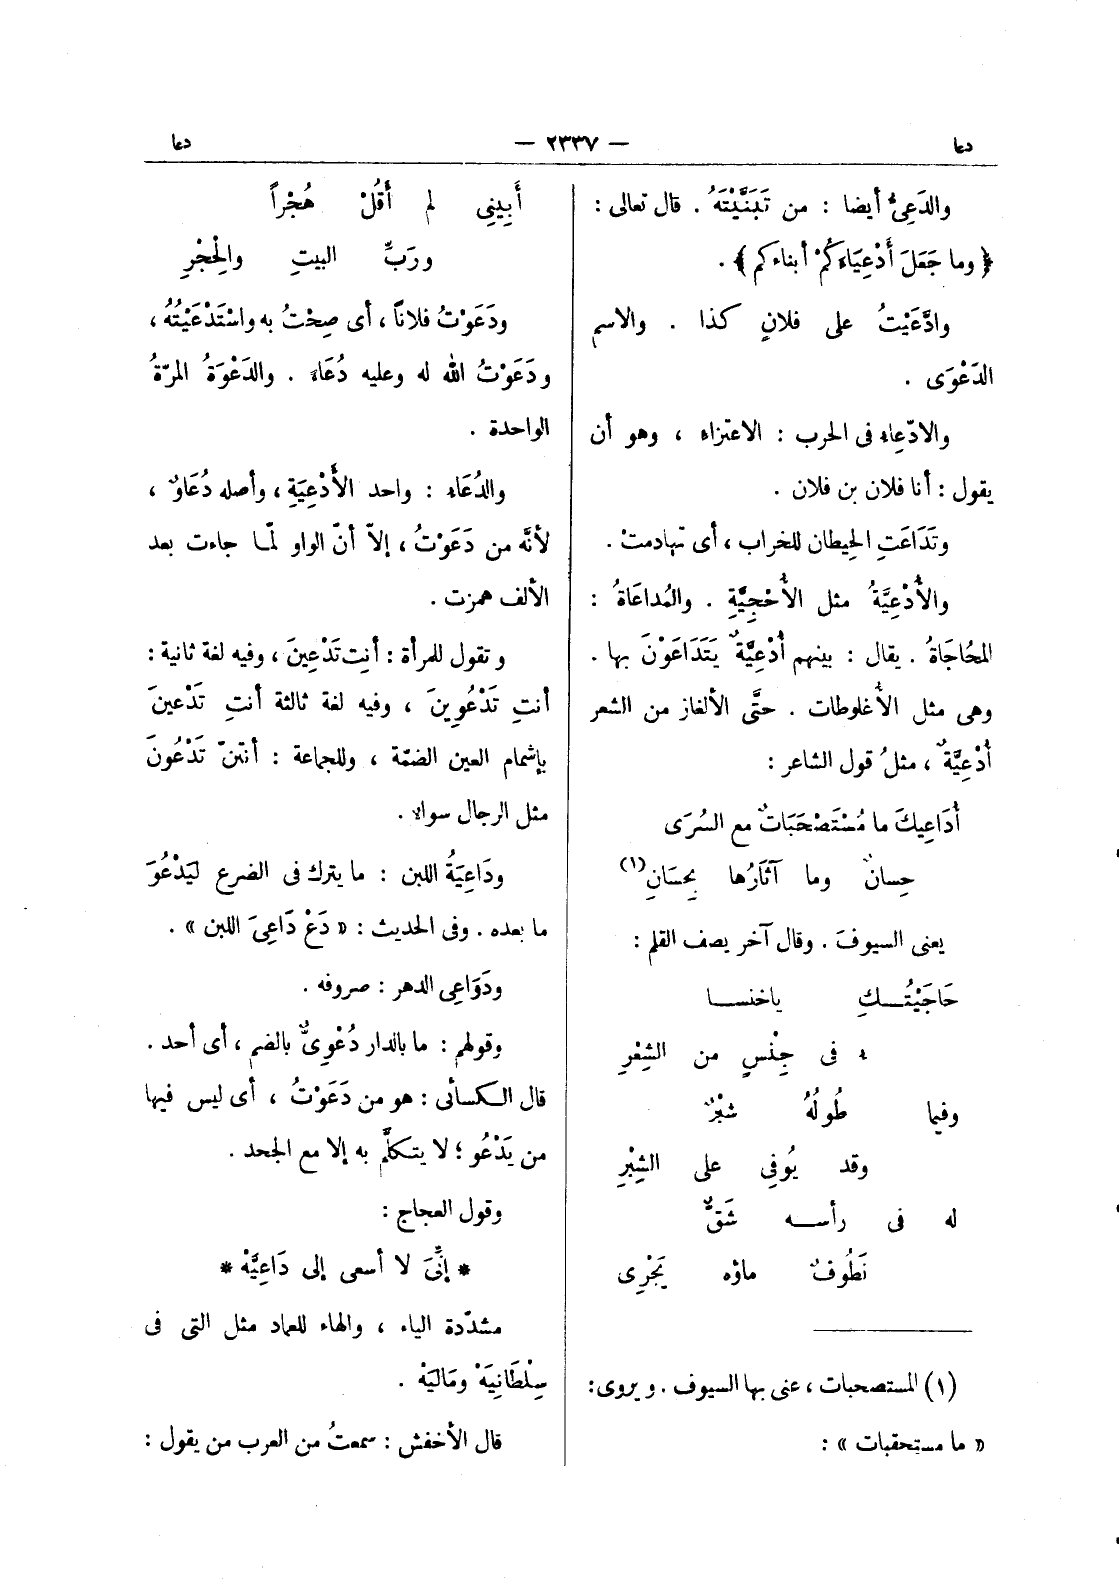 دعا
— ٢٣٣٧ —
دعا
والدَعِىُّ أيضا : من تَبَنَّيْتَهُ . قال تعالى :
﴿ وما جَعَلَ أَدْعِيَاءَكُمْ أبناءكم ﴾ .
وادَّعَيْتُ على فلانٍ كذا . والاسم
الدَعْوَى .
والادّعاء فى الحرب : الاعتزاء ، وهو أن
يقول : أنا فلان بن فلان .
وتَدَاعَتِ الحِيطان للخراب ، أى تهادمتْ .
والأُدْعِيَّةُ مثل الأُحْجِيَّةِ . والمُداعَاةُ :
المُحَاجَاةُ . يقال : بينهم أُدْعِيَّةٌ يَتَدَاعَوْنَ بها .
وهى مثل الأُغلوطات . حتَّى الألغاز من الشعر
أُدْعِيَّةٌ ، مثلُ قول الشاعر :
أُدَاعِيكَ ما مُسْتَصْحَبَاتٌ مع السُرَى
حِسانٌ وما آثَارُها بِحِسَانِ (١)
يعنى السيوفَ . وقال آخر يصف القلم :
حَاجَيْتُـــكِ ياخنســا
ء فى جِنْسٍ من الشِعْرِ
وفيما طُولُهُ شِبْرٌ
وقد يُوفِى على الشِبْرِ
له فى رأســه شَقٌّ
نَطُوفٌ ماؤه يَجْرِى
(١) المستصحبات ، عنى بها السيوف . ويروى :
« ما مستحقبات » :
أَبِينِى لم أَقُلْ هُجْراً
ورَبِّ البيتِ والْحِجْرِ
ودَعَوْتُ فلاناً ، أى صِحْتُ به واسْتَدْعَيْتُهُ ،
ودَعَوْتُ الله له وعليه دُعَاءً . والدَعْوَةُ المرّةُ
الواحدة .
والدُعَاء : واحد الأَدْعِيَةِ ، وأصله دُعَاوٌ ،
لأنَّه من دَعَوْتُ ، إلاّ أنّ الواو لمّا جاءت بعد
الألف همزت .
وتقول للمرأة : أنتِ تَدْعِينَ ، وفيه لغة ثانية :
أنتِ تَدْعُوِينَ ، وفيه لغة ثالثة أنتِ تَدْعينَ
بإشمام العين الضمّة ، وللجماعة : أنتنّ تَدْعُونَ
مثل الرجال سواء .
ودَاعِيَةُ اللبن : ما يترك فى الضرع ليَدْعُوَ
ما بعده . وفى الحديث : « دَعْ دَاعِىَ اللبن » .
ودَوَاعِى الدهر : صروفه .
وقولهم : ما بالدار دُعْوِىٌّ بالضم ، أى أحد .
قال الكسائى : هو من دَعَوْتُ ، أى ليس فيها
من يَدْعُو ؛ لا يتكلَّم به إلا مع الجحد .
وقول العجاج :
* إنِّىَ لا أسعى إلى دَاعِيَّهْ *
مشدّدة الياء ، والهاء للعماد مثل التى فى
سِلْطَانِيَهْ ومَالِيَهْ .
قال الأخفش : سمعتُ من العرب من يقول :